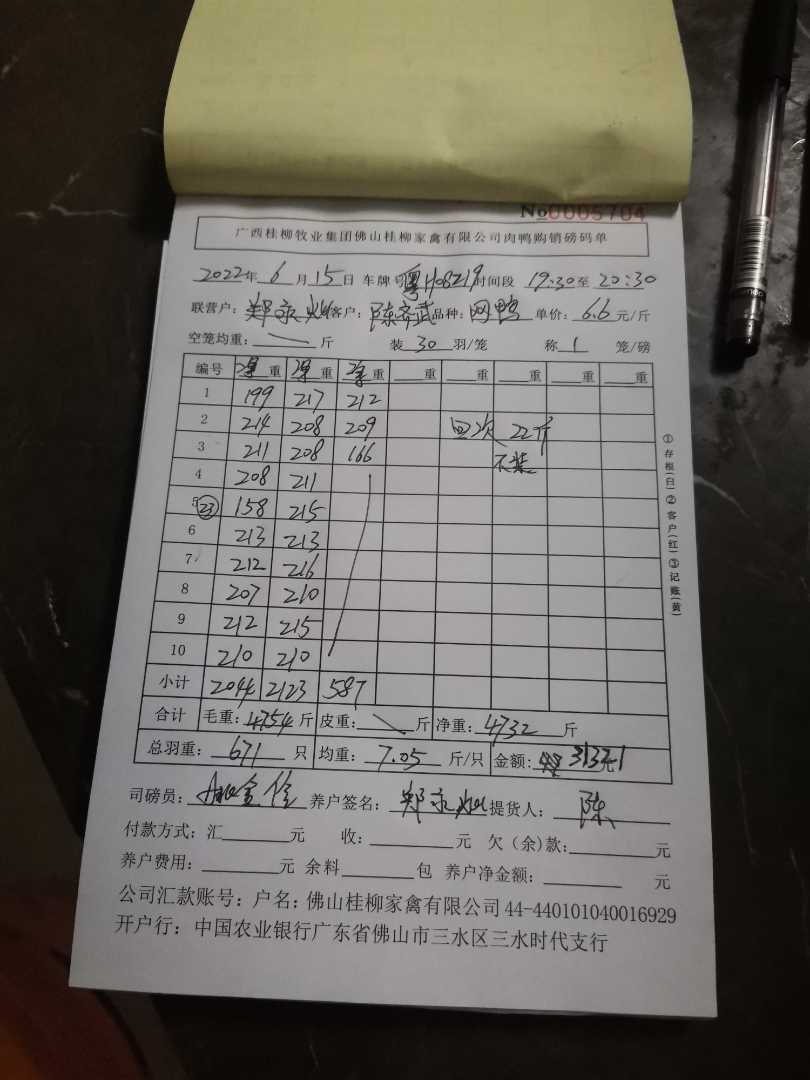 No 0005704
广西桂柳牧业集团佛山桂柳家禽有限公司肉鸭购销磅码单
2022年 6 月 15 日 车牌号 粤H08219 时间段 19:30 至 20:30
联营户: 郑永 客户: 陈齐武 品种: 网鸭 单价: 6.6 元/斤
空笼均重: 斤 装 30 羽/笼 称 1 笼/磅
编号 净重 净重 净重 重 重 重 重 重
1 199 217 212
2 214 208 209 回次 22斤
3 211 208 166 不装
4 208 211
5 (23) 158 215
6 213 213
7 212 216
8 207 210
9 212 215
10 210 210
小计 2044 2123 587
合计 毛重: 4754 斤 皮重: 斤 净重: 4732 斤
总羽重: 671 只 均重: 7.05 斤/只 金额: 31331
司磅员: 养户签名: 郑永 提货人: 陈
付款方式: 汇 元 收: 元 欠(余)款: 元
养户费用: 元 余料 包 养户净金额: 元
公司汇款账号: 户名: 佛山桂柳家禽有限公司 44-440101040016929
开户行: 中国农业银行广东省佛山市三水区三水时代支行
①存根(白)②客户(红)③记账(黄)